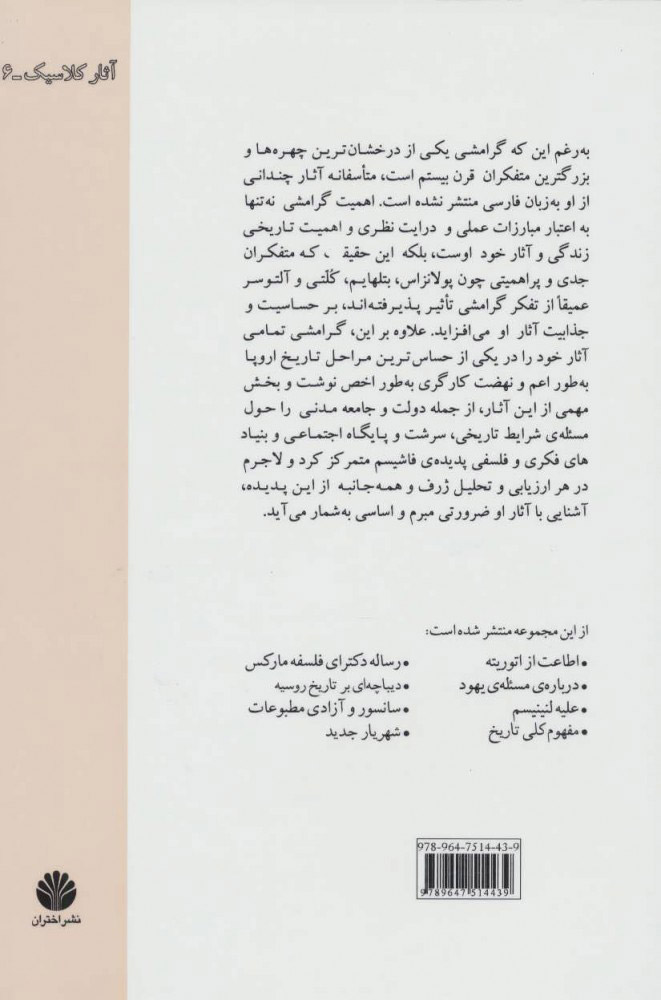 آثار کلاسیک ـ ۶
به‌رغم این که گرامشی یکی از درخشان‌ترین چهره‌ها و
بزرگترین متفکران قرن بیستم است، متأسفانه آثار چندانی
از او به‌زبان فارسی منتشر نشده است. اهمیت گرامشی نه‌تنها
به اعتبار مبارزات عملی و درایت نظری و اهمیت تاریخی
زندگی و آثار خود اوست، بلکه این حقیقت که متفکران
جدی و پراهمیتی چون پولانزاس، بتلهایم، کُلتی و آلتوسر
عمیقاً از تفکر گرامشی تأثیر پذیرفته‌اند، بر حساسیت و
جذابیت آثار او می‌افزاید. علاوه بر این، گرامشی تمامی
آثار خود را در یکی از حساس‌ترین مراحل تاریخ اروپا
به‌طور اعم و نهضت کارگری به‌طور اخص نوشت و بخش
مهمی از این آثار، از جمله دولت و جامعه مدنی را حول
مسئله‌ی شرایط تاریخی، سرشت و پایگاه اجتماعی و بنیاد
های فکری و فلسفی پدیده‌ی فاشیسم متمرکز کرد و لاجرم
در هر ارزیابی و تحلیل ژرف و همه‌جانبه از این پدیده،
آشنایی با آثار او ضرورتی مبرم و اساسی به‌شمار می‌آید.
از این مجموعه منتشر شده است:
• اطاعت از اتوریته
• درباره‌ی مسئله‌ی یهود
• علیه لنینیسم
• مفهوم کلی تاریخ
• رساله دکترای فلسفه مارکس
• دیباچه‌ای بر تاریخ روسیه
• سانسور و آزادی مطبوعات
• شهریار جدید
978-964-7514-43-9
9789647514439
نشر اختران